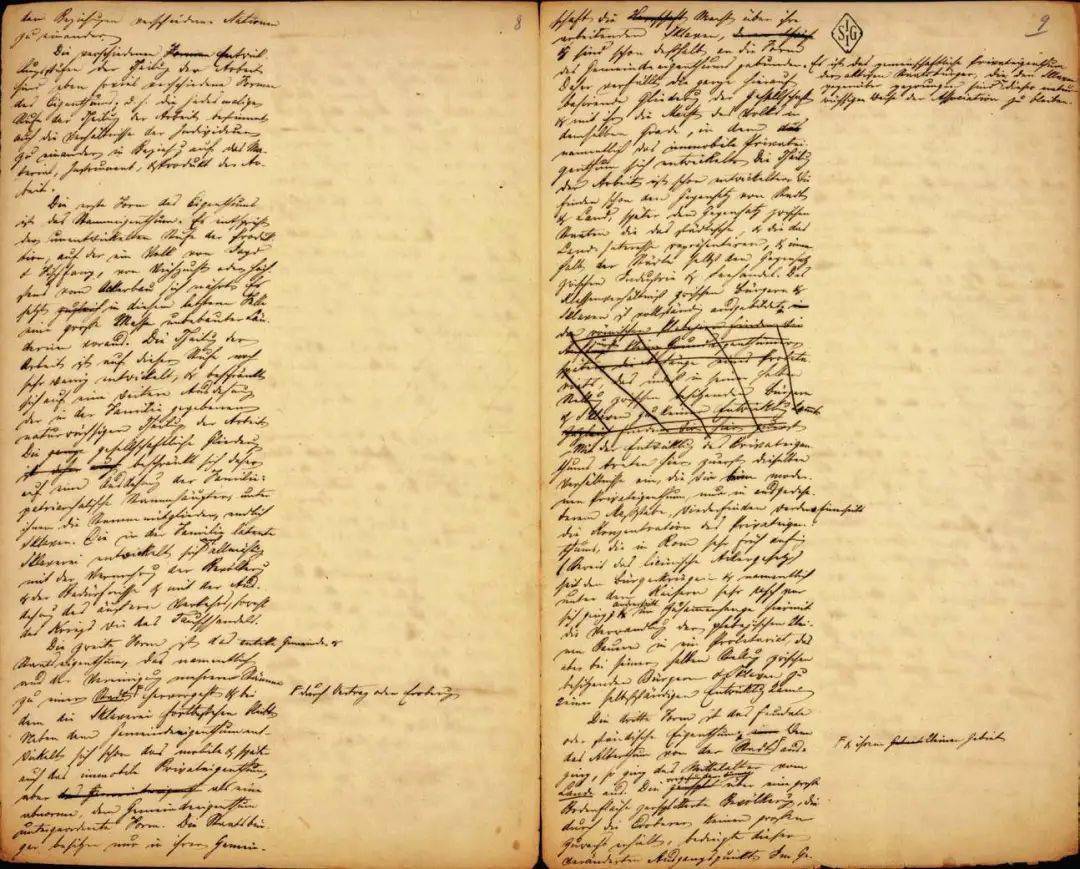 der Beziehungen verschiedener Nationen
zu einander.
8
Die verschiedenen Formen Entwick-
lungsstufen der Theilung der Arbeit
sind eben soviel verschiedene Formen
des Eigenthums; d. h. die jedesmalige
Stufe der Theilung der Arbeit bestimmt
auch die Verhältnisse der Individuen
zu einander in Beziehg auf das Ma-
terial, Instrument, & Produkt der Ar-
beit.
Die erste Form des Eigenthums
ist das Stammeigenthum. Es entspricht
der unentwickelten Stufe der Produk-
tion, auf der ein Volk von Jagd
& Fischfang, von Viehzucht oder höch-
stens vom Ackerbau sich nährt. Es
setzt in diesem letzteren Falle
eine große Masse unbebauter Län-
dereien voraus. Die Theilung der
Arbeit ist auf dieser Stufe noch
sehr wenig entwickelt, & beschränkt
sich auf eine weitere Ausdehnung
der in der Familie gegebenen
naturwüchsigen Theilung der Arbeit.
Die gesellschaftliche Gliederung
beschränkt sich daher
auf eine Ausdehnung der Familie:
patriarchalische Stammhäupter, unter
ihnen die Stammmitglieder, endlich
Sklaven. Die in der Familie latente
Sklaverei entwickelt sich erst allmählig
mit der Vermehrung der Bevölkerung
& der Bedürfnisse & mit der Aus-
dehnung des äußern Verkehrs, sowohl
des Kriegs wie des Tauschhandels.
Die zweite Form ist das antike Gemeinde- &
Staatseigenthum, das namentlich
aus der Vereinigung mehrerer Stämme
zu einer Stadt F hervorgeht & bei
F durch Vertrag oder Eroberung
dem die Sklaverei fortbestehen bleibt.
Neben dem Gemeindeeigenthum ent-
wickelt sich schon das mobile & später
auch das immobile Privateigenthum,
aber als eine
abnorme, dem Gemeindeeigenthum
untergeordnete Form. Die Staatsbür-
ger besitzen nur in ihrer Gemein-
9
SIG
schaft die Macht über ihre
arbeitenden Sklaven,
& sind schon deßhalb an die Form
des Gemeindeeigenthums gebunden. Es ist das gemeinschaftliche Privateigenthum
der aktiven Staatsbürger, die den Sklaven
gegenüber gezwungen sind, in dieser natur-
wüchsigen Weise der Association zu bleiben.
Daher verfällt die ganze hierauf
basirende Gliederung der Gesellschaft
& mit ihr die Macht des Volks in
demselben Grade, in dem
namentlich das immobile Privatei-
genthum sich entwickelt. Die Theilung
der Arbeit ist schon entwickelter. Wir
finden schon den Gegensatz von Stadt
& Land, später den Gegensatz zwischen
Staaten die das städtische, & die das
Landinteresse repräsentiren, & inner-
halb der Städte selbst den Gegensatz
zwischen Industrie & Seehandel. Das
Klassenverhältniß zwischen Bürgern &
Sklaven ist vollständig ausgebildet.
zwischen besitzenden Bürgern
& Sklaven zu keiner Entwicklung
Mit der Entwicklung des Privateigen-
thums treten hier zuerst dieselben
Verhältnisse ein, die wir beim moder-
nen Privateigenthum, nur in ausgedehn-
terem Maßstabe, wiederfinden werden. Einerseits
die Konzentration des Privateigen-
thums, die in Rom sehr früh anfing
(Beweis das licinische Ackergesetz),
seit den Bürgerkriegen & namentlich
unter den Kaisern sehr rasch vor
sich ging; andrerseits im Zusammenhange hiermit
die Verwandlung der plebejischen klei-
nen Bauern in ein Proletariat, das
aber bei seiner halben Stellung zwischen
besitzenden Bürgern & Sklaven zu
keiner selbstständigen Entwicklung kam.
Die dritte Form ist das feudale
oder ständische Eigenthum. Wenn
das Alterthum von der Stadt F aus-
F & ihrem kleinen Gebiet
ging, so ging das Mittelalter vom
Lande aus. Die vorgefundene dünne über eine große
Bodenfläche zersplitterte Bevölkerung, die
durch die Eroberer keinen großen
Zuwachs erhielt, bedingte diesen
veränderten Ausgangspunkt. Im Ge-